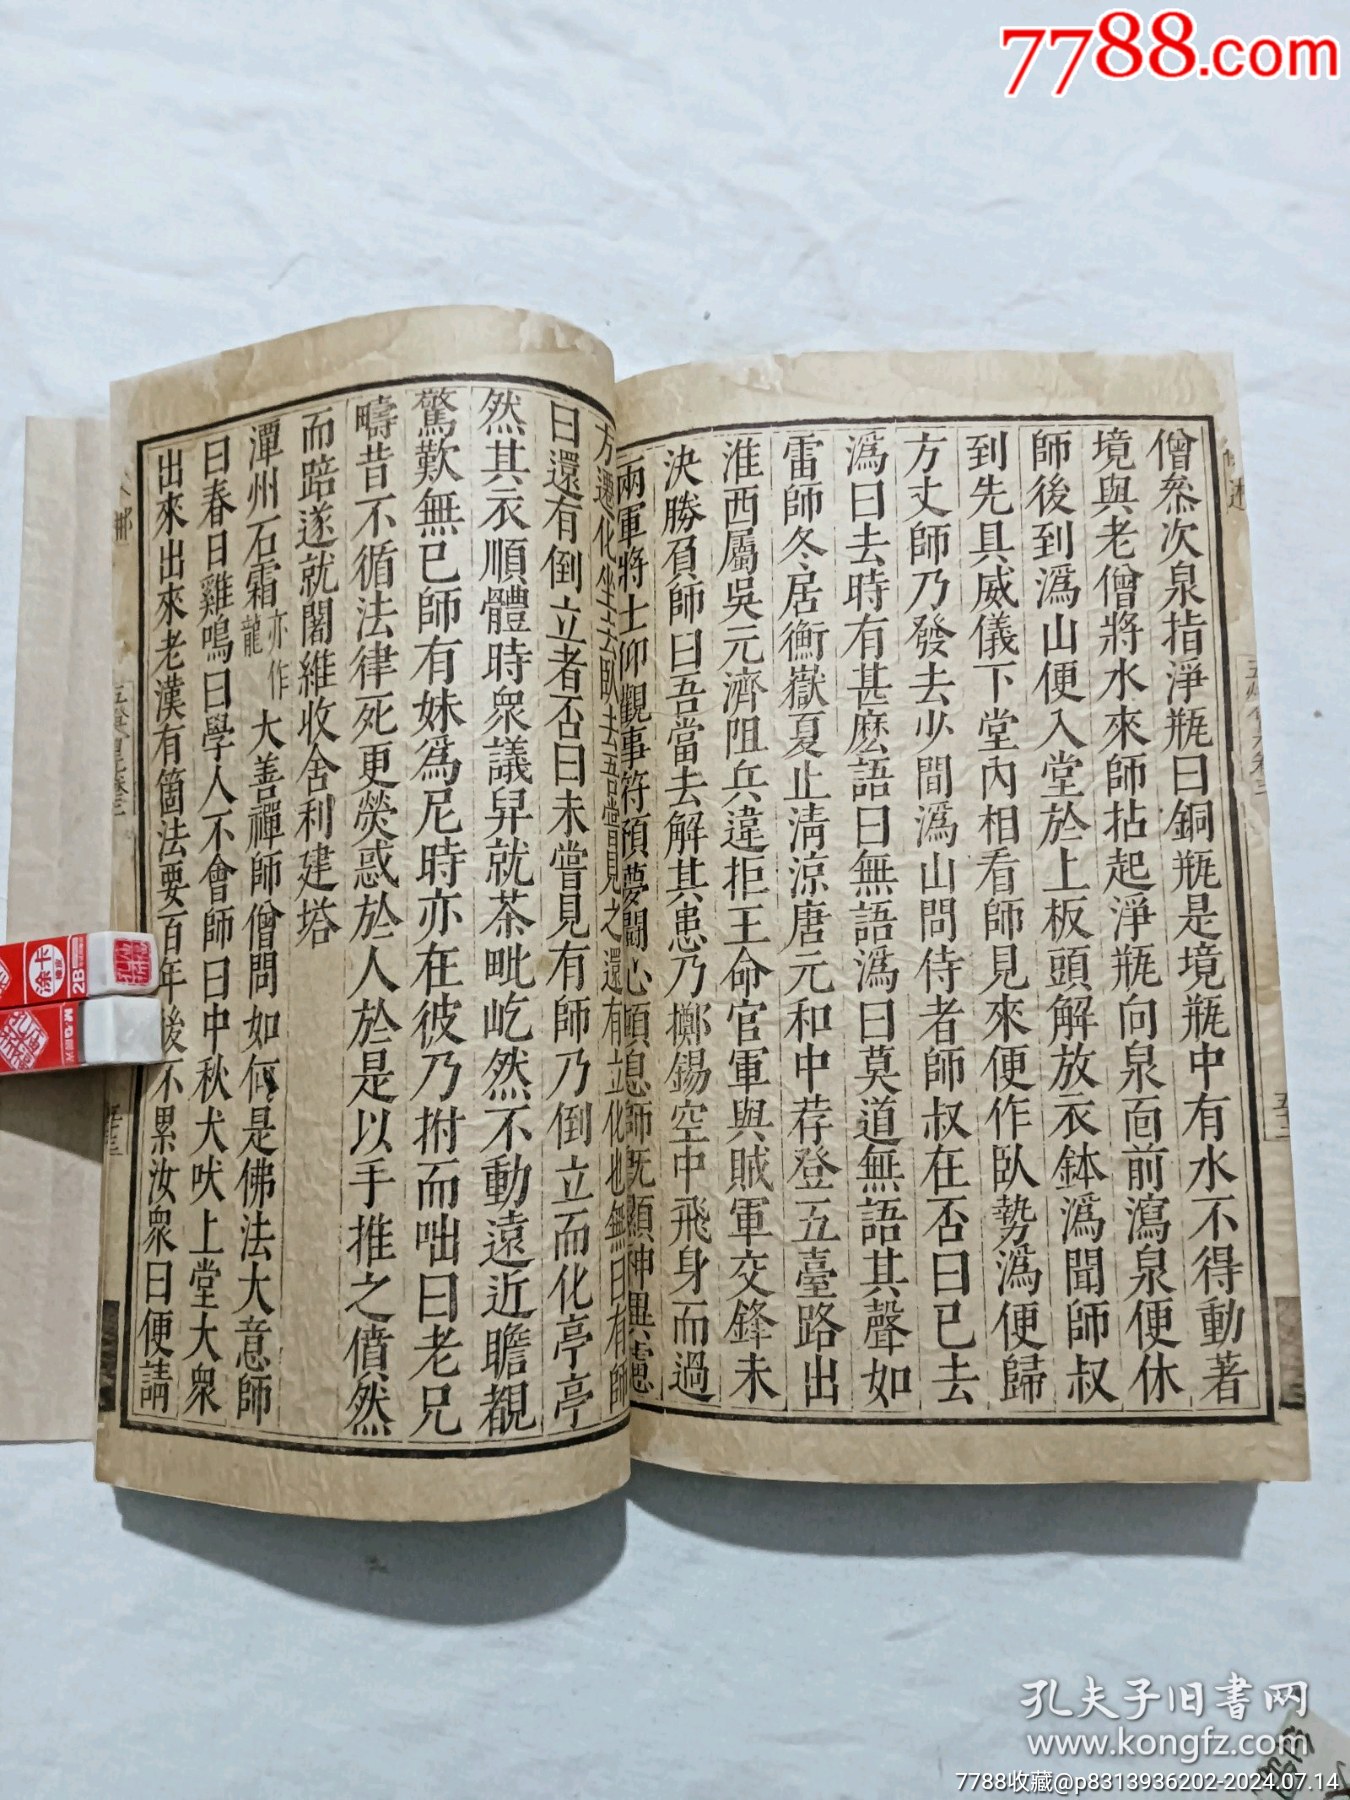 7788.com
僧叅次泉指淨瓶曰銅瓶是境瓶中有水不得動著
境與老僧將水來師拈起淨瓶向泉面前瀉泉便休
師後到潙山便入堂於上板頭解放衣鉢潙聞師叔
到先具威儀下堂內相看師見來便作臥勢潙便歸
方丈師乃發去少間潙山問侍者師叔在否曰已去
潙曰去時有甚麽語曰無語潙曰莫道無語其聲如
雷師冬居衡嶽夏止淸涼唐元和中荐登五臺路出
淮西屬吳元濟阻兵違拒王命官軍與賊軍交鋒未
決勝負師曰吾當去解其患乃擲錫空中飛身而過
兩軍將士仰觀事符預夢鬭心頓息師旣顯神異慮
方遷化坐去臥去吾嘗見之還有立化也無曰有師
曰還有倒立者否曰未嘗見有師乃倒立而化亭亭
然其衣順體時衆議舁就茶毗屹然不動遠近瞻覩
驚歎無已師有妹爲尼時亦在彼乃拊而咄曰老兄
疇昔不循法律死更熒惑於人於是以手推之僨然
而踣遂就闍維收舍利建塔
潭州石霜亦作龍大善禪師僧問如何是佛法大意師
曰春日雞鳴曰學人不會師曰中秋犬吠上堂大衆
出來出來老漢有箇法要百年後不累汝衆曰便請
涂卡
2B
孔夫子旧书网
www.kongfz.com
7788收藏@p8313936202-2024.07.14